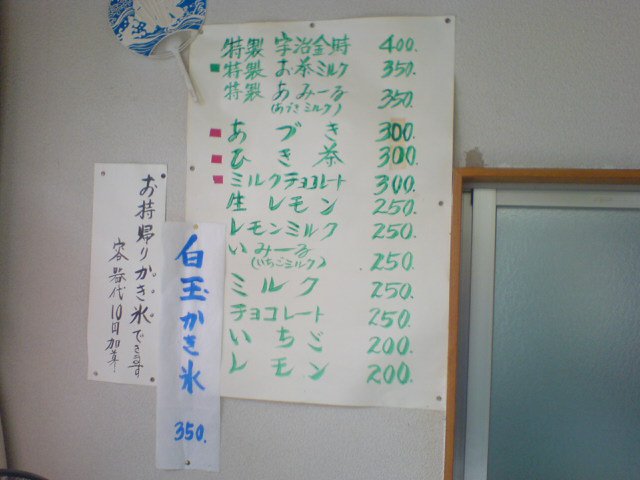 特製 宇治金時 400.
特製 お茶ミルク 350.
特製 あみーる 350.
(あづきミルク)
あづき 300.
ひき茶 300.
ミルクチョコレート 300.
生レモン 250.
レモンミルク 250.
いみーる 250.
(いちごミルク)
ミルク 250.
チョコレート 250.
いちご 200.
レモン 200.
お持帰りかき氷できます
容器代10円加算!
白玉かき氷 350.